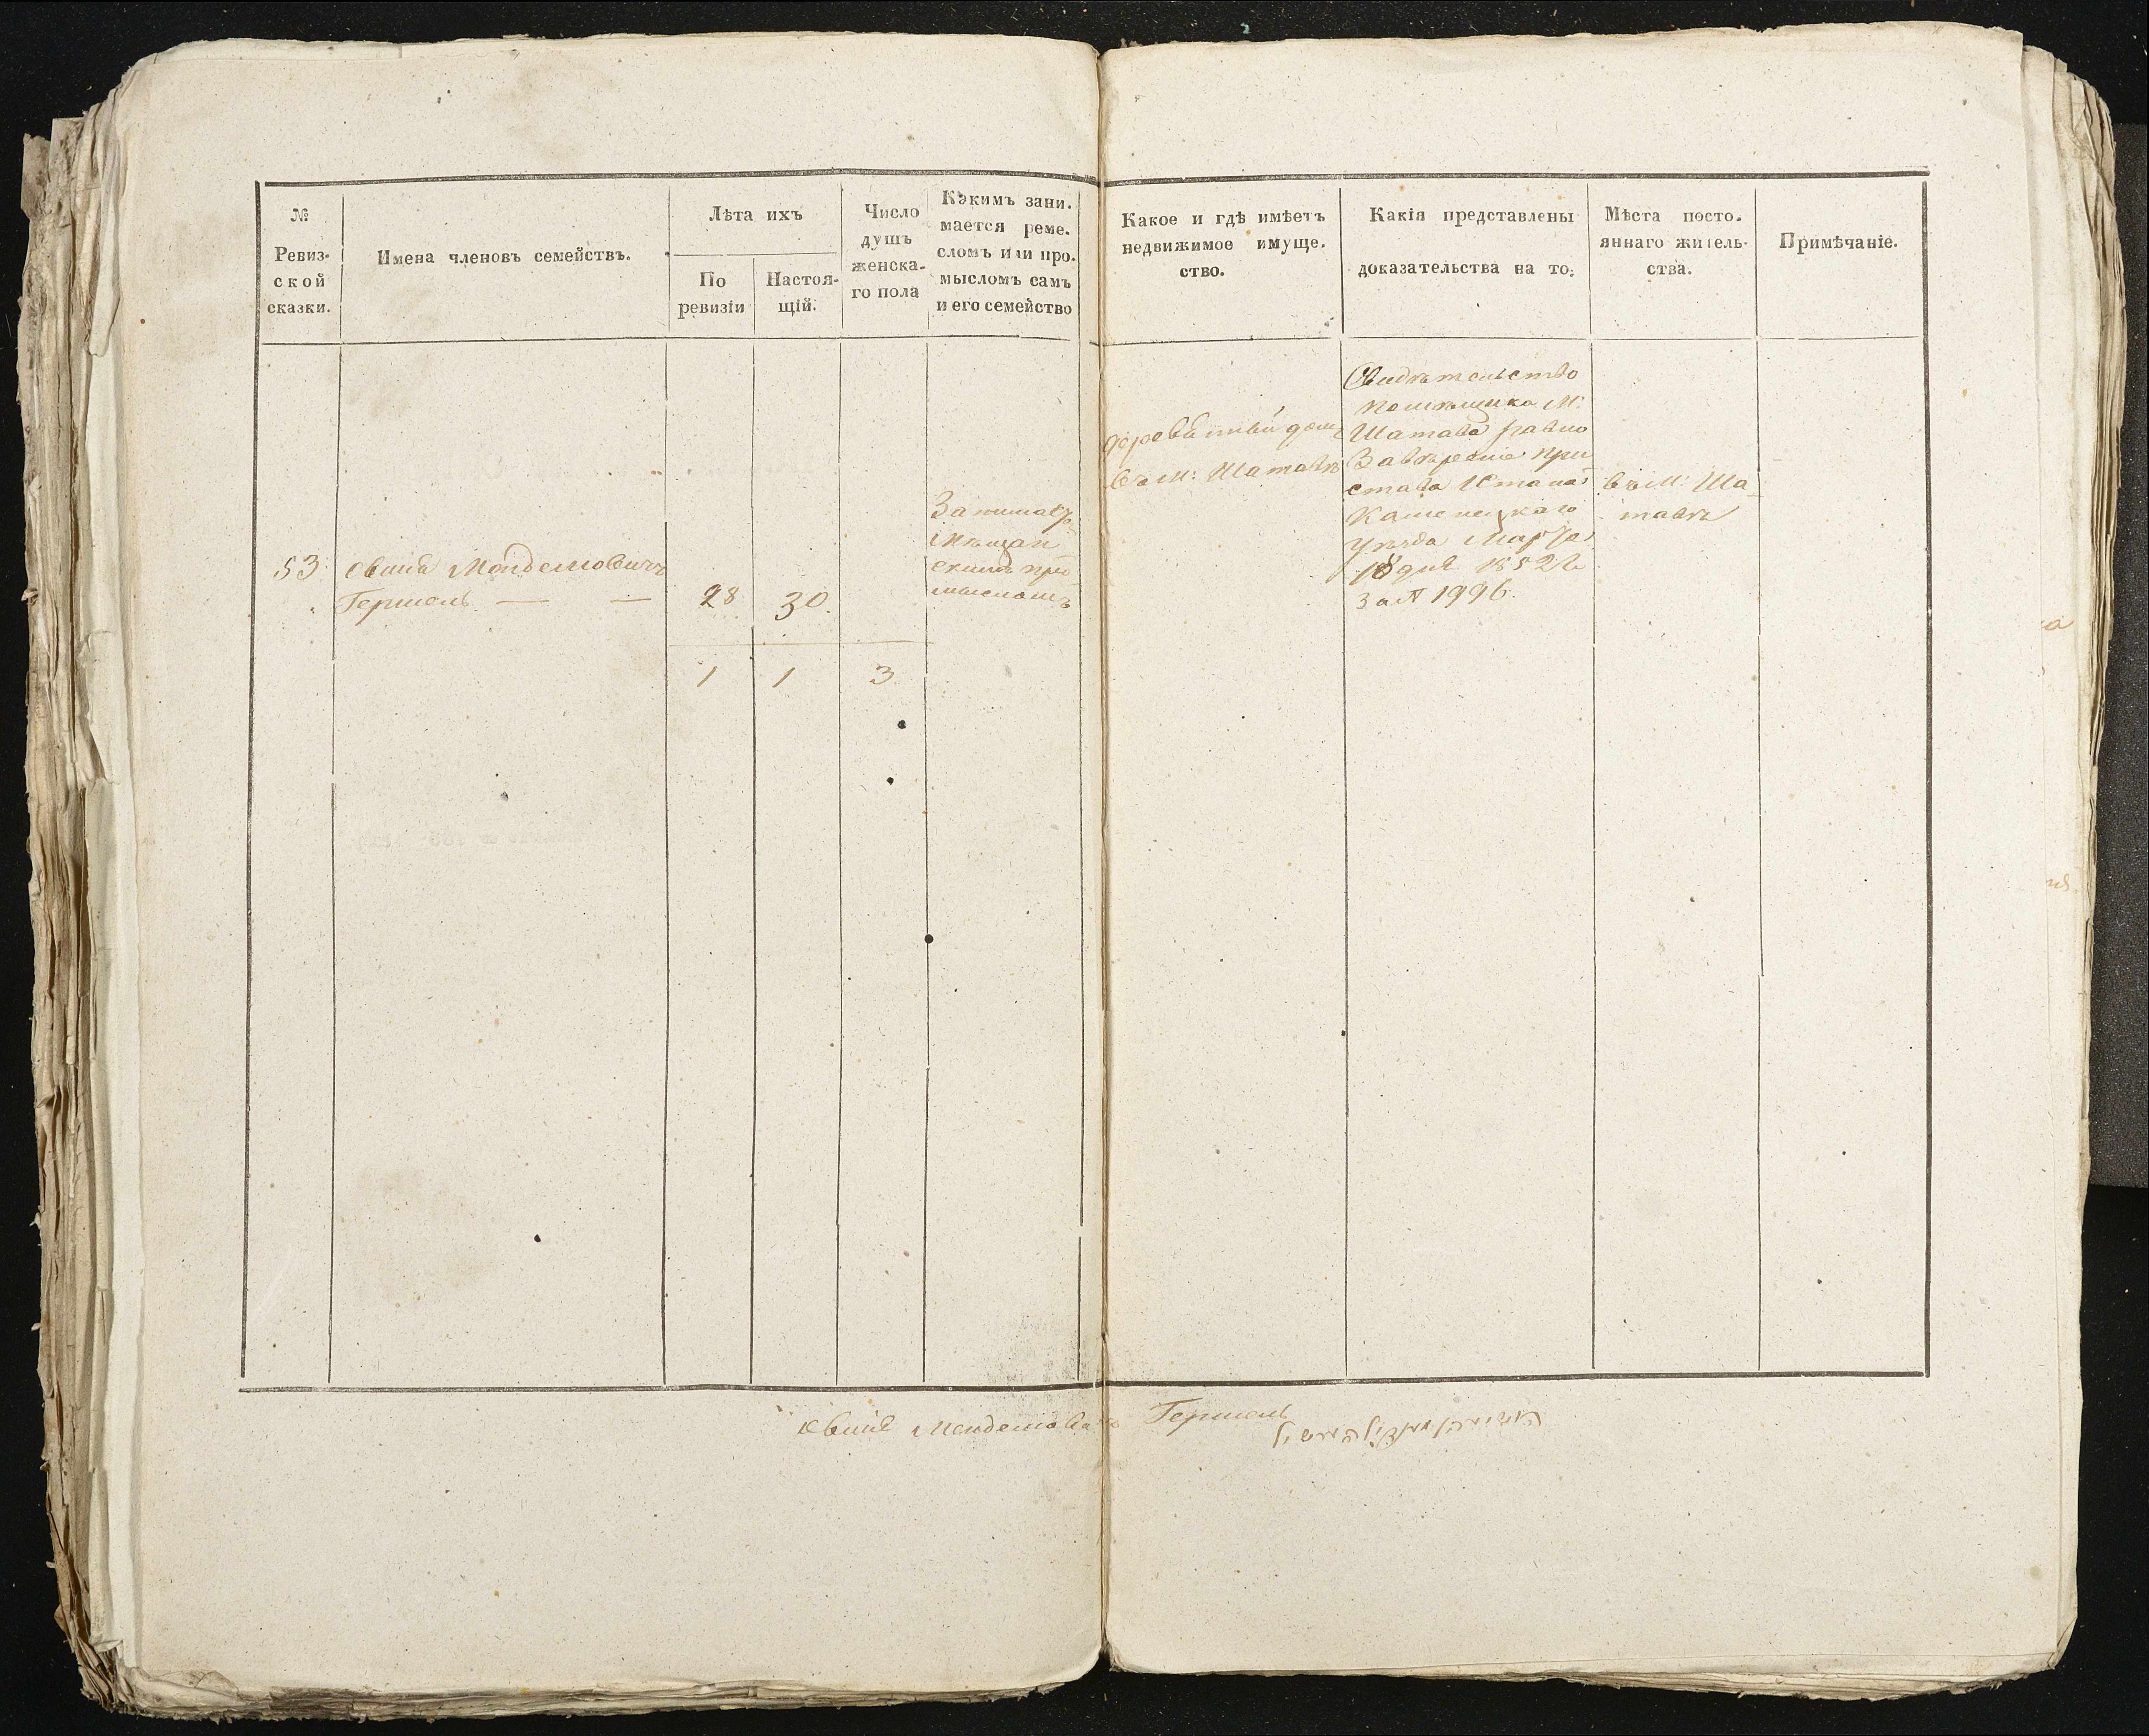 №
Ревиз-
ской
сказки.
Имена членовъ семействъ.
Лѣта ихъ
По
ревизіи
Настоя-
щій.
Число
душъ
женска-
го пола
Какимъ зани-
мается реме-
сломъ или про-
мысломъ самъ
и его семейство
Какое и гдѣ имѣетъ
недвижимое имуще-
ство.
Какія представлены
доказательства на то:
Мѣста посто-
яннаго житель-
ства.
Примѣчаніе.
53
Мендемовичъ
Гершель
28
30.
Занимает
мѣщан
скимъ про
мысломъ
деревяный домъ
въ м: Шатавѣ
Свидѣтельство
помѣщика м:
Шатава равно
Завѣреніе при
става Стана
Каменецкаго
уѣзда Марта
18 дня 1852 г
за № 1996.
въ м: Ша-
тавѣ
1
1
3
Мендемовичъ Гершель